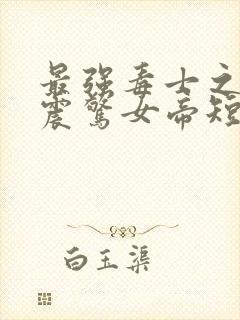 最强毒士之
震驚女帝短
白玉渠